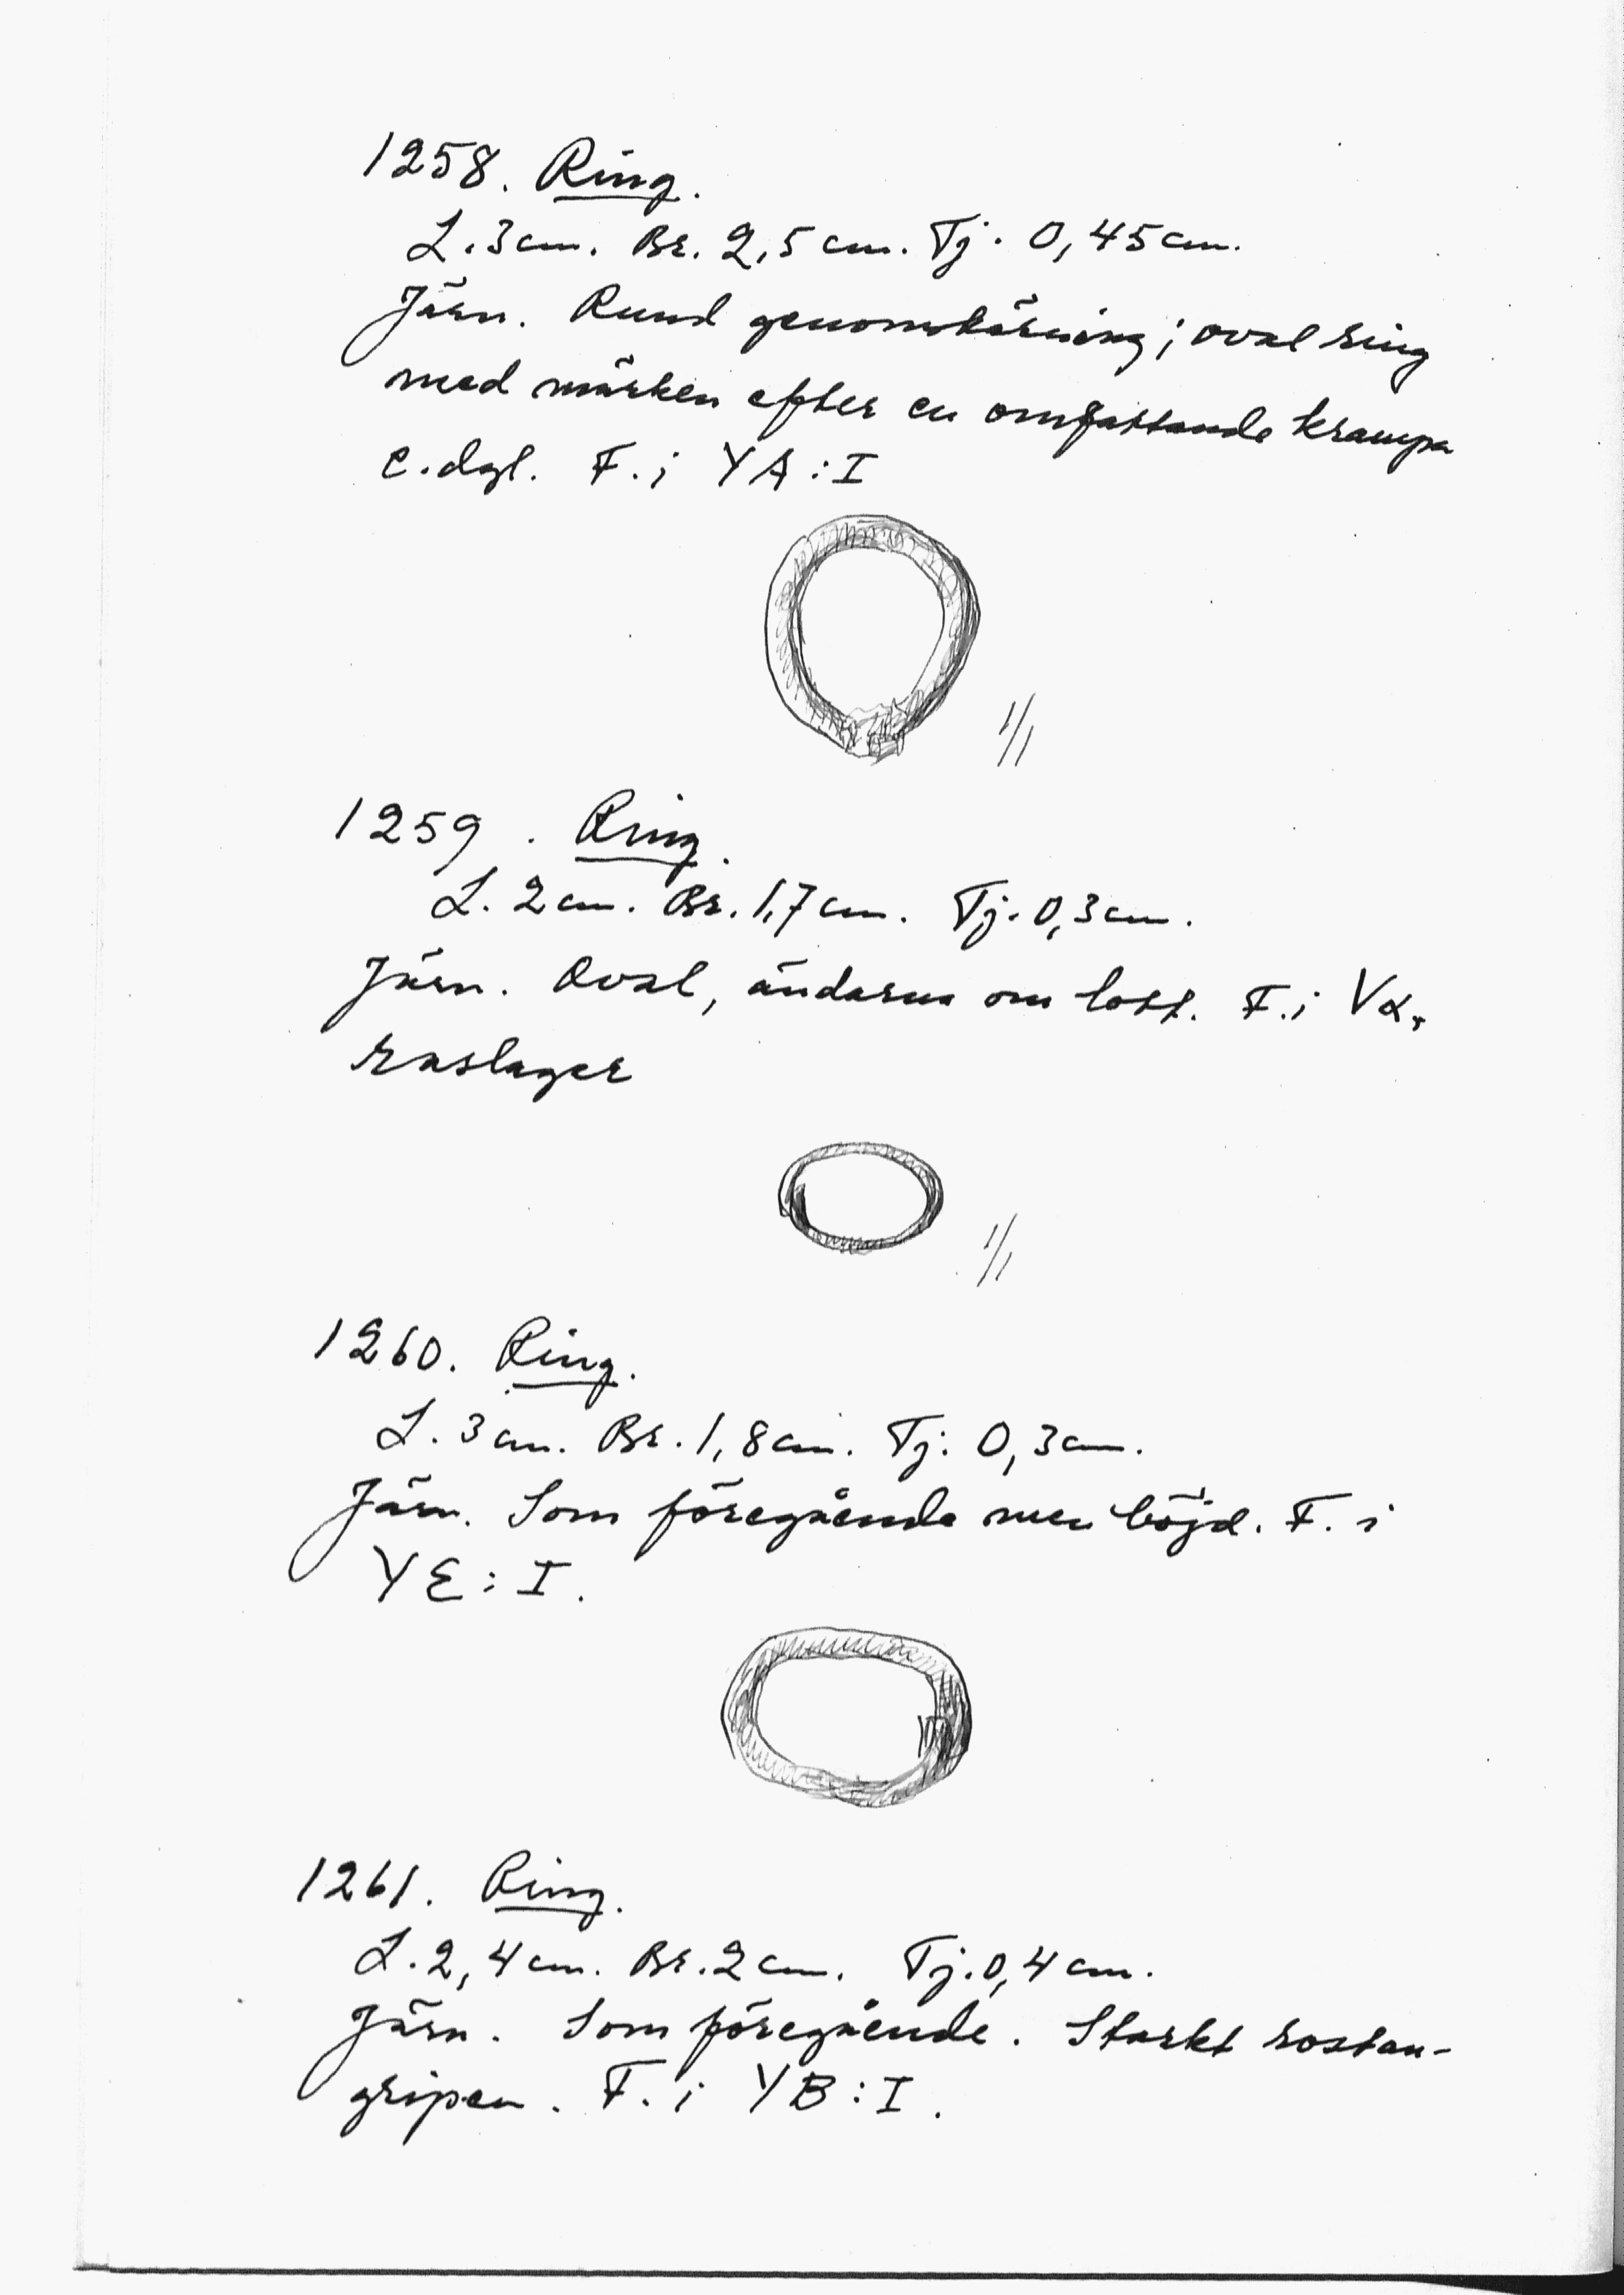 1258. Ring.
L. 3 cm. Br. 2,5 cm. Tj. 0,45 cm.
Järn. Rund genomskärning; oval ring
med märken efter en omfattande krampa
e.dyl. F. i YA:I
1/1
1259. Ring.
L. 2 cm. Br. 1,7 cm. Tj. 0,3 cm.
Järn. Oval, ändarna om lott. F. i Vα,
raslager
1/1
1260. Ring.
L. 3 cm. Br. 1,8 cm. Tj. 0,3 cm.
Järn. Som föregående men böjd. F. i
YE:I.
1261. Ring.
L. 2,4 cm. Br. 2 cm. Tj. 0,4 cm.
Järn. Som föregående. Starkt rostan-
gripen. F. i YB:I.